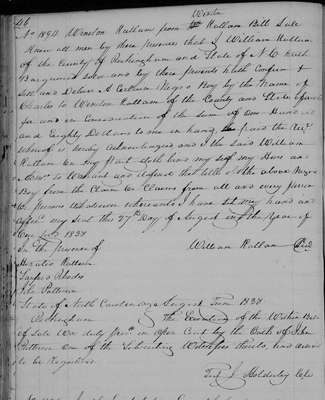 46
Winston
No 1890 Winston Hallum from Hallum Bill Sale
Know all men by these presents that I William Hallum
of the County of Rockingham and State of N C hath
Bargained sold and by these presents hath Confirm &
Sell and Deliver A Certain Negro Boy by the Name of
Charles to Winston Hallum of the County and State aforesaid
for and in Consideration of the sum of One Hundred
and Eighty Dollars to me in hand paid the
whereof is hereby acknowledged and I the said William
Hallum on my part doth bind my self my Heirs and
to Warrant and defend the title of the above Negro
Boy from the Claim or Claims from all and every person
or persons whatsoever whereunto I have set my hand and
affix my Seal the 27th Day of August in the Year of
Our Lord 1838
In the presence of William Hallum
Horatio Hallum
Rhodes
John Patterson
State of North Carolina August Term 1838
Rockingham the Execution of the Within Bill
of Sale was duly in Open Court by the Oath of John
Patterson One of the Subscribing Witnesses thereto, and
to be Registered
Test J Holderby